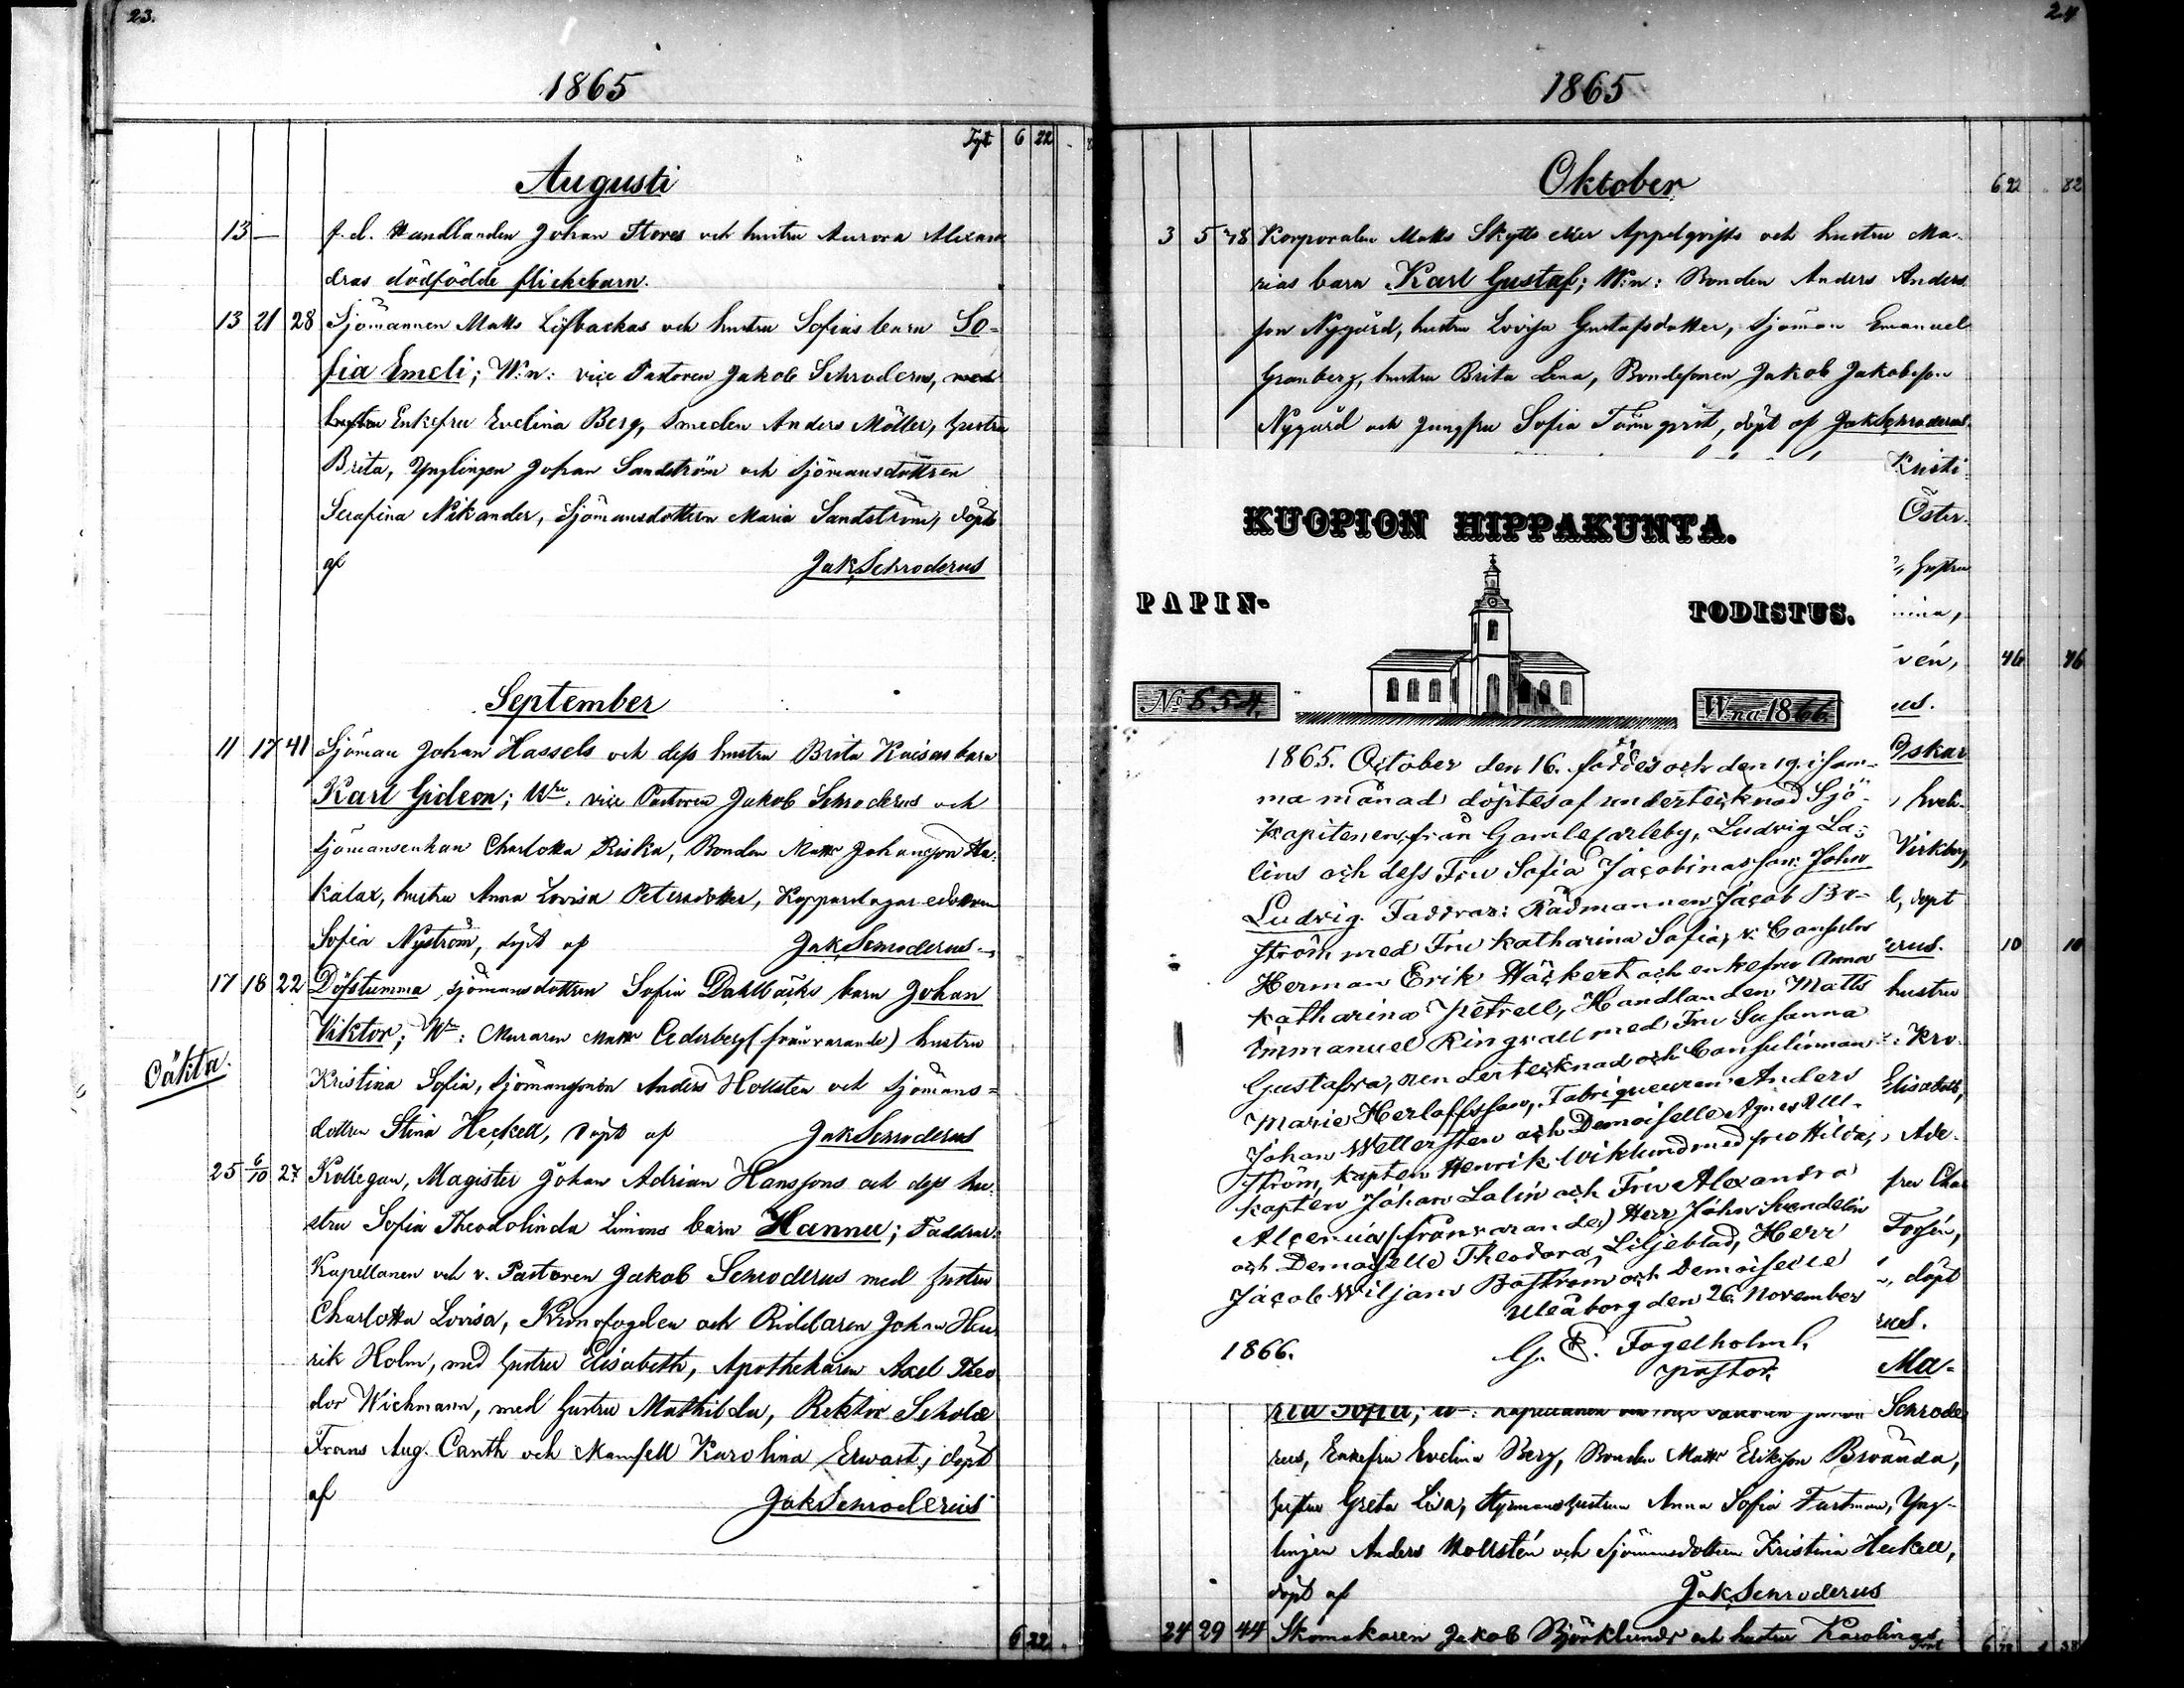 23.
1865
Tyt 6 22
Augusti
13 — f. d. Handlanden Johan Stores och hustru Aurora Alexan
dras dödfödde flickebarn.
13 21 28 Sjömannen Matts Löfbackas och hustru Sofias barn So-
fia Emeli; W:n: vice Pastoren Jakob Schroderus, med
hustru Enkefru Evelina Berg, Smeden Anders Möller, hustru
Brita, Ynglingen Johan Sandström och Sjömansdottren
Serafina Nikander, Sjömansdottren Maria Sandström, döpt
af JakSchroderus
September
11 17 41 Sjöman Johan Hassels och dess hustru Brita Kaisas barn
Karl Gideon; Wne. vice Pastoren Jakob Schroderus och
Sjömansenkan Charlotta Riska, Bonden Matts Johansson Ha-
kalax, hustru Anna Lovisa Petersdotter, Kopparslagaredottren
Sofia Nyström, döpt af JakSchroderus
17 18 22 Döfstumma sjömansdottren Sofia Dahlbäcks barn Johan
Viktor; Wn: Muraren Matts Cederberg (frånvarande) hustru
Oäkta.
Kristina Sofia, Sjömanssonen Anders Hollsten och Sjömans-
dottren Stina Heckell, döpt af JakSchroderus
25 6/10 27 Kollegan, Magister Johan Adrian Hanssons och dess hu-
stru Sofia Theodolinda Limons barn Hannu; Faddrar:
Kapellanen och v. Pastoren Jakob Schroderus med hustru
Charlotta Lovisa, Kronofogden och Riddaren Johan Hen-
rik Holm, med hustru Elisabeth, Apothekaren Axel Theo
dor Wichmann, med hustru Mathilda, Rektor Scholæ
Frans Aug. Canth och Mamsell Karolina Erwast, döpt
af JakSchroderus
6 22
24
1865
Oktober
6 22 82
3 5 78 Korporalen Matts Skytts eller Appelqvists och hustru Ma-
rias barn Karl Gustaf; W:n: Bonden Anders Anders
son Nygård, hustru Lovisa Gustafsdotter, Sjöman Emanuel
Granberg, hustru Brita Lena, Bondesonen Jakob Jakobsson
Nygård och Jungfru Sofia Törnqvist, döpt af JakSchroderus.
Kristi
Öster-
hustru
46 46
KUOPION HIPPAKUNTA.
PAPIN- TODISTUS.
No 554. Wna 1866.
1865. October den 16. föddes och den 19. i sam-
ma månad döptes af undertecknad Sjö-
kapitenen från Gamlecarleby, Ludvig La-
lins och dess Fru Sofia Jacobinas son: John
Ludvig. Faddrar: Rådmannen Jacob Bo-
ström med Fru Katharina Sofia, v. Consuln
Herman Erik Häckert och enkefru Anna
Katharina Petrell, Handlanden Matts
Immanuel Ringvall med Fru Susanna
Gustafva, undertecknad och Consulinnan
Marie Herloffsson, Fabriqueuren Anders
Johan Wellersten och Demoiselle Agnes Ull-
ström, Kapten Henrik Wiklund med fru Hilda,
Kapten Johan Lalin och Fru Alexandra
Alcenia (frånvarande) Herr John Svendelin
och Demoiselle Theodora Liljeblad, Herr
Jacob Wiljam Boström och Demoiselle
Uleåborg den 26. November
1866.
G. E. Fogelholm.
pastor.
Oskar
Virkberg,
döpt
10 10
hustru
Kro-
Elisabeth,
Ade-
fru Cha
Forsén,
döpt
Ma-
ria Sofia; Wn: Kapellanen och vice Pastoren Jakob Schrode
rus, Enkefru Evelina Berg, Bonden Matts Eriksson Brvända,
hustru Greta Lisa, Styrmanshustrun Anna Sofia Furtman, Yng-
lingen Anders Hollstén och Sjömansdottren Kristina Heckell,
döpt af JakSchroderus
24 29 44 Skomakaren Jakob Björklunds och hustru Karolinas